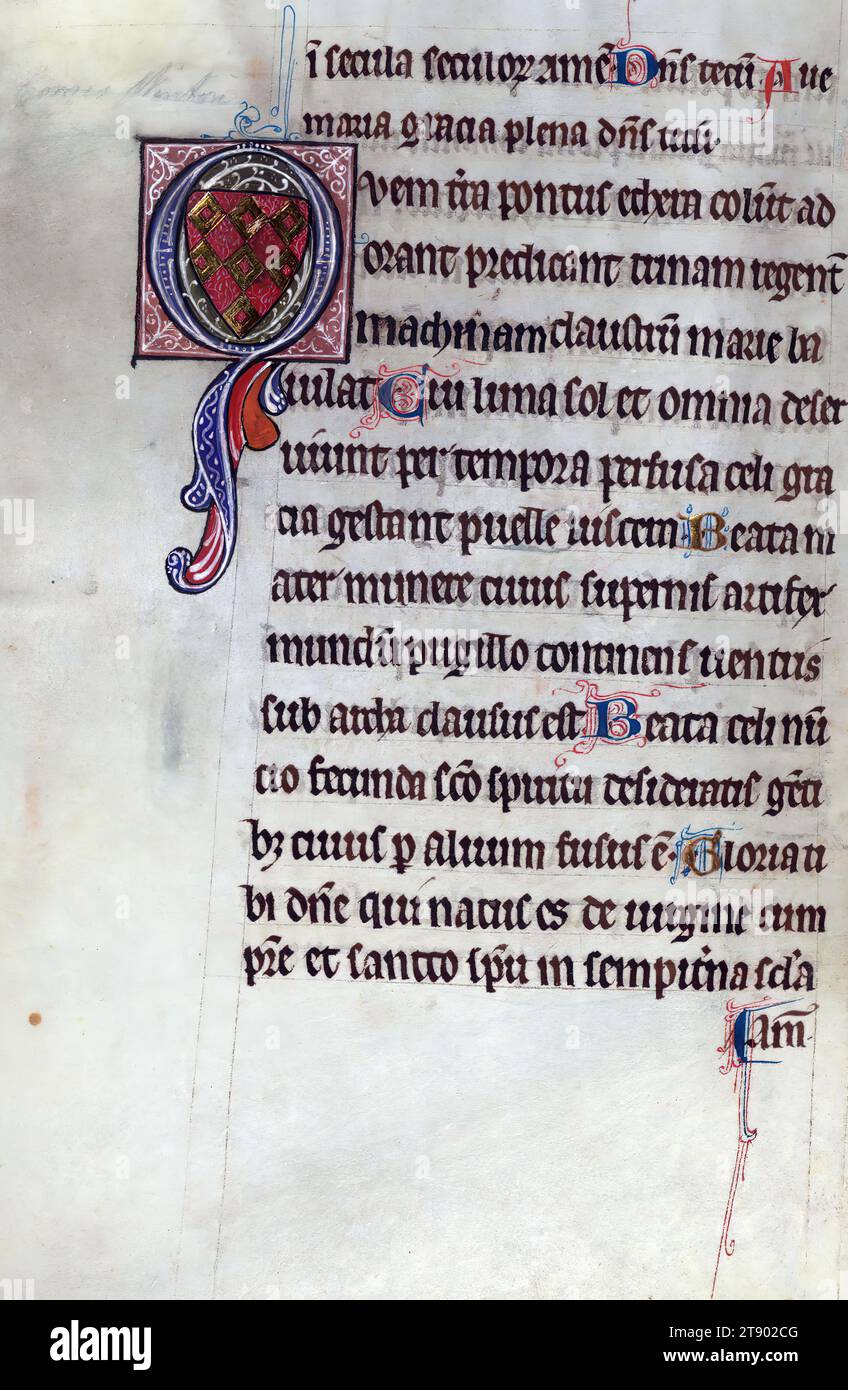 ī secula seculoꝝ amē Dn̄s tecū Aue
maria gracia plena dn̄s tecū·
Quem t̾ra pontus ethera colūt ad
orant predicant trinam regent̄
machinam claustrū marie ba
iulat Cui luna sol et omnia deser
uiunt per tempora perfusa celi gra
cia gestant puelle uiscera Beata m
ater munere cuius supernis artifex
mundū pugillo continens uentris
sub archa clausus est Beata celi nū
cio fecunda sc̄o spiritu desideratis gēti
bꝫ cuius p aluum fusus ē· Gloria ti
bi dn̄e qui natus es de uirgine cum
pr̄e et sancto sp̄u in sempit̾na sc̄la
am̄·
alamy
Image ID: 2T902CG
www.alamy.com